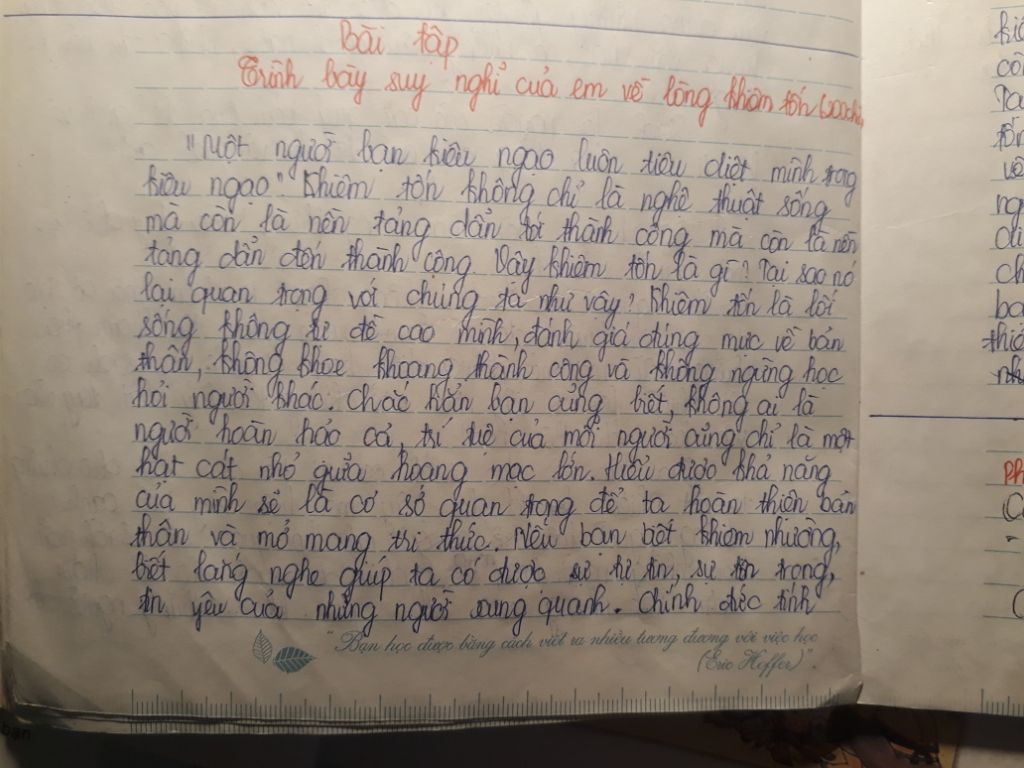 Bài tập
Trình bày suy nghỉ của em về lòng khiêm tốn (200chữ
"Một người bạn kiêu ngạo luôn tiêu diệt mình trong
kiêu ngạo". Khiêm tốn không chỉ là nghệ thuật sống
mà còn là nền tảng dẩn tới thành công mà còn là nền
tảng dẩn đến thành công Vây khiêm tốn là gì? Tại sao nó
lại quan trọng với chúng ta như vây? Khiêm tốn là lối
sống không tự đề cao mình, đánh giá đúng mực về bản
thân, không khoe khoang thành công và không ngừng học
hỏi người khác. Chắc hẳn bạn củng biết, không ai là
người hoàn hảo cả, trí tuệ của mỗi người củng chỉ là một
hạt cát nhỏ giửa hoang mạc lớn. Hiểu được khả năng
của mình sẽ là cơ sở quan trọng để ta hoàn thiện bản
thân và mở mang tri thức. Nếu bạn biết khiêm nhường,
biết lắng nghe giúp ta có được sự tự tin, sự tôn trọng,
tin yêu của những người xung quanh. Chính đức tính
"Bạn học được bằng cách viết ra nhiều tương đương với việc học
(Eric Hoffer)".
bạn